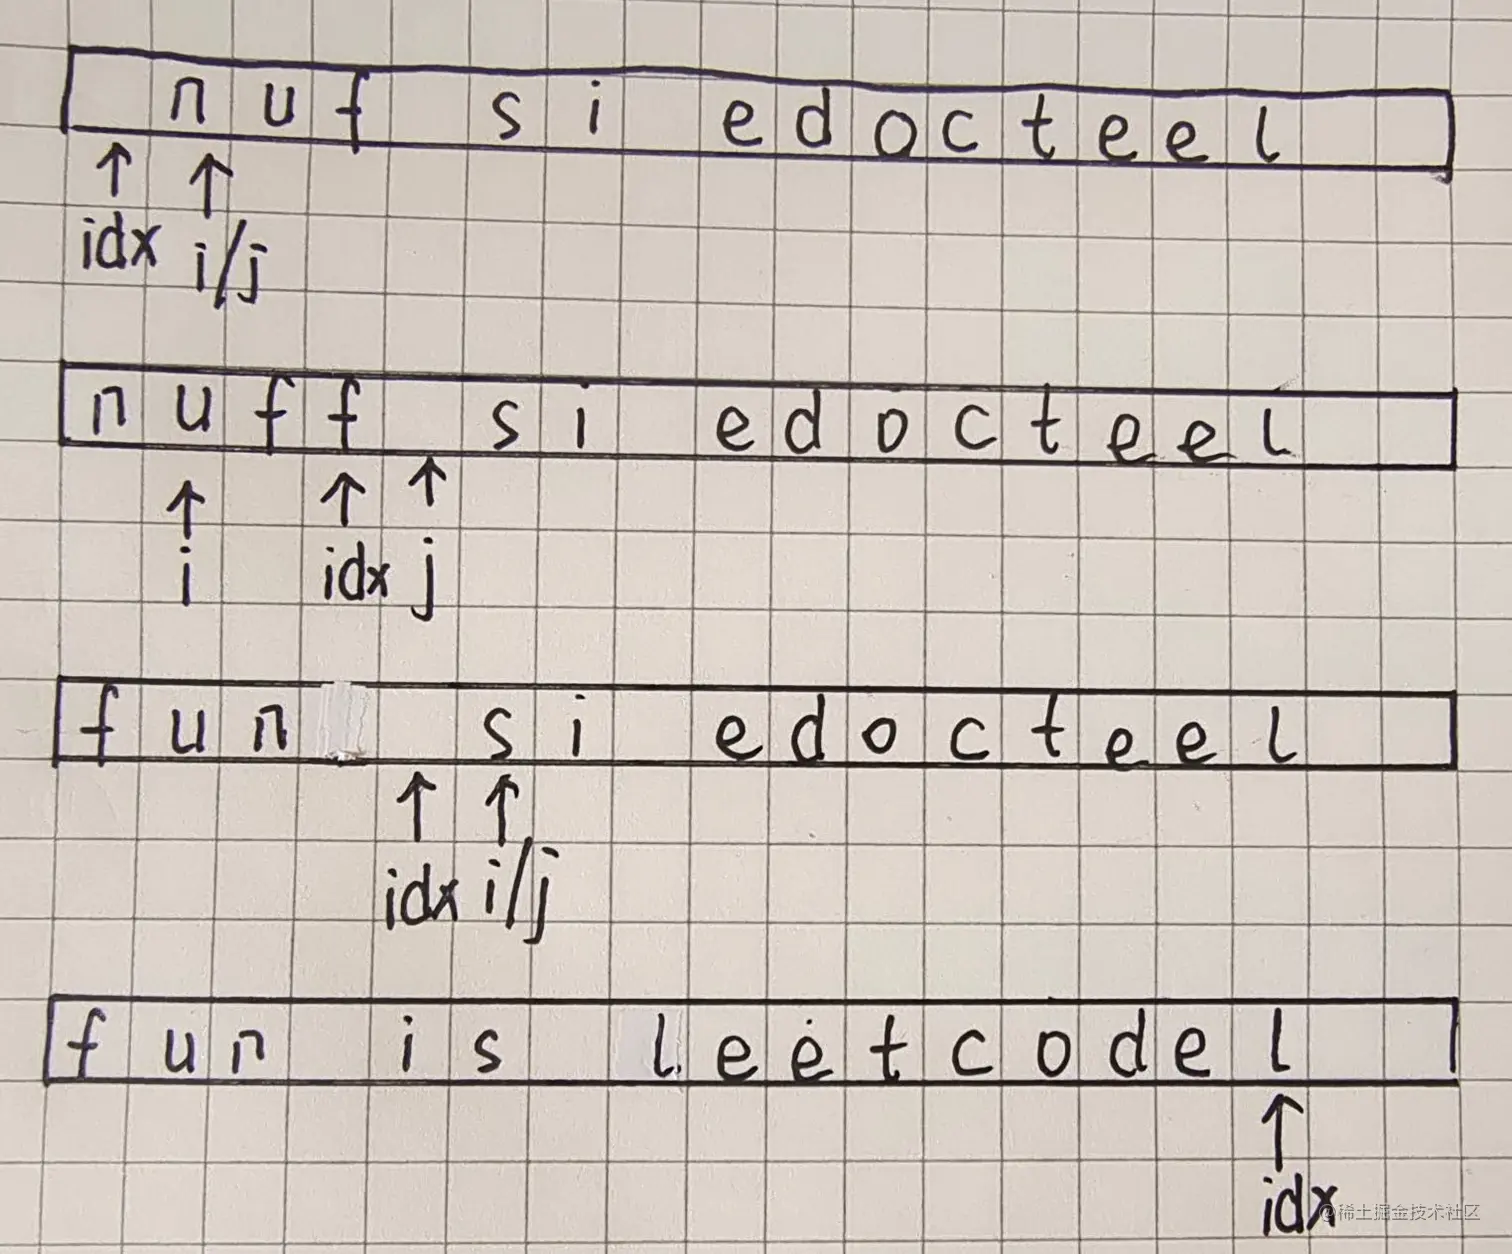 n u f s i e d o c t e e l
idx i/j
n u f f s i e d o c t e e l
i idx j
f u n s i e d o c t e e l
idx i/j
f u n i s l e e t c o d e l
idx
@稀土掘金技术社区